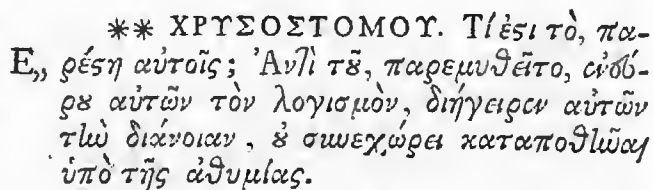 ** ΧΡΥΣΟΣΤΟΜΟΥ. Τί ἐστι τὸ, πα-
E,, ρέστη αὐτοῖς; Ἀντὶ τοῦ, παρεμυθεῖτο, ἀνώρ-
θου αὐτῶν τὸν λογισμὸν, διήγειρεν αὐτῶν
τὴν διάνοιαν, οὐ συνεχώρει καταποθῆναι
ὑπὸ τῆς ἀθυμίας.